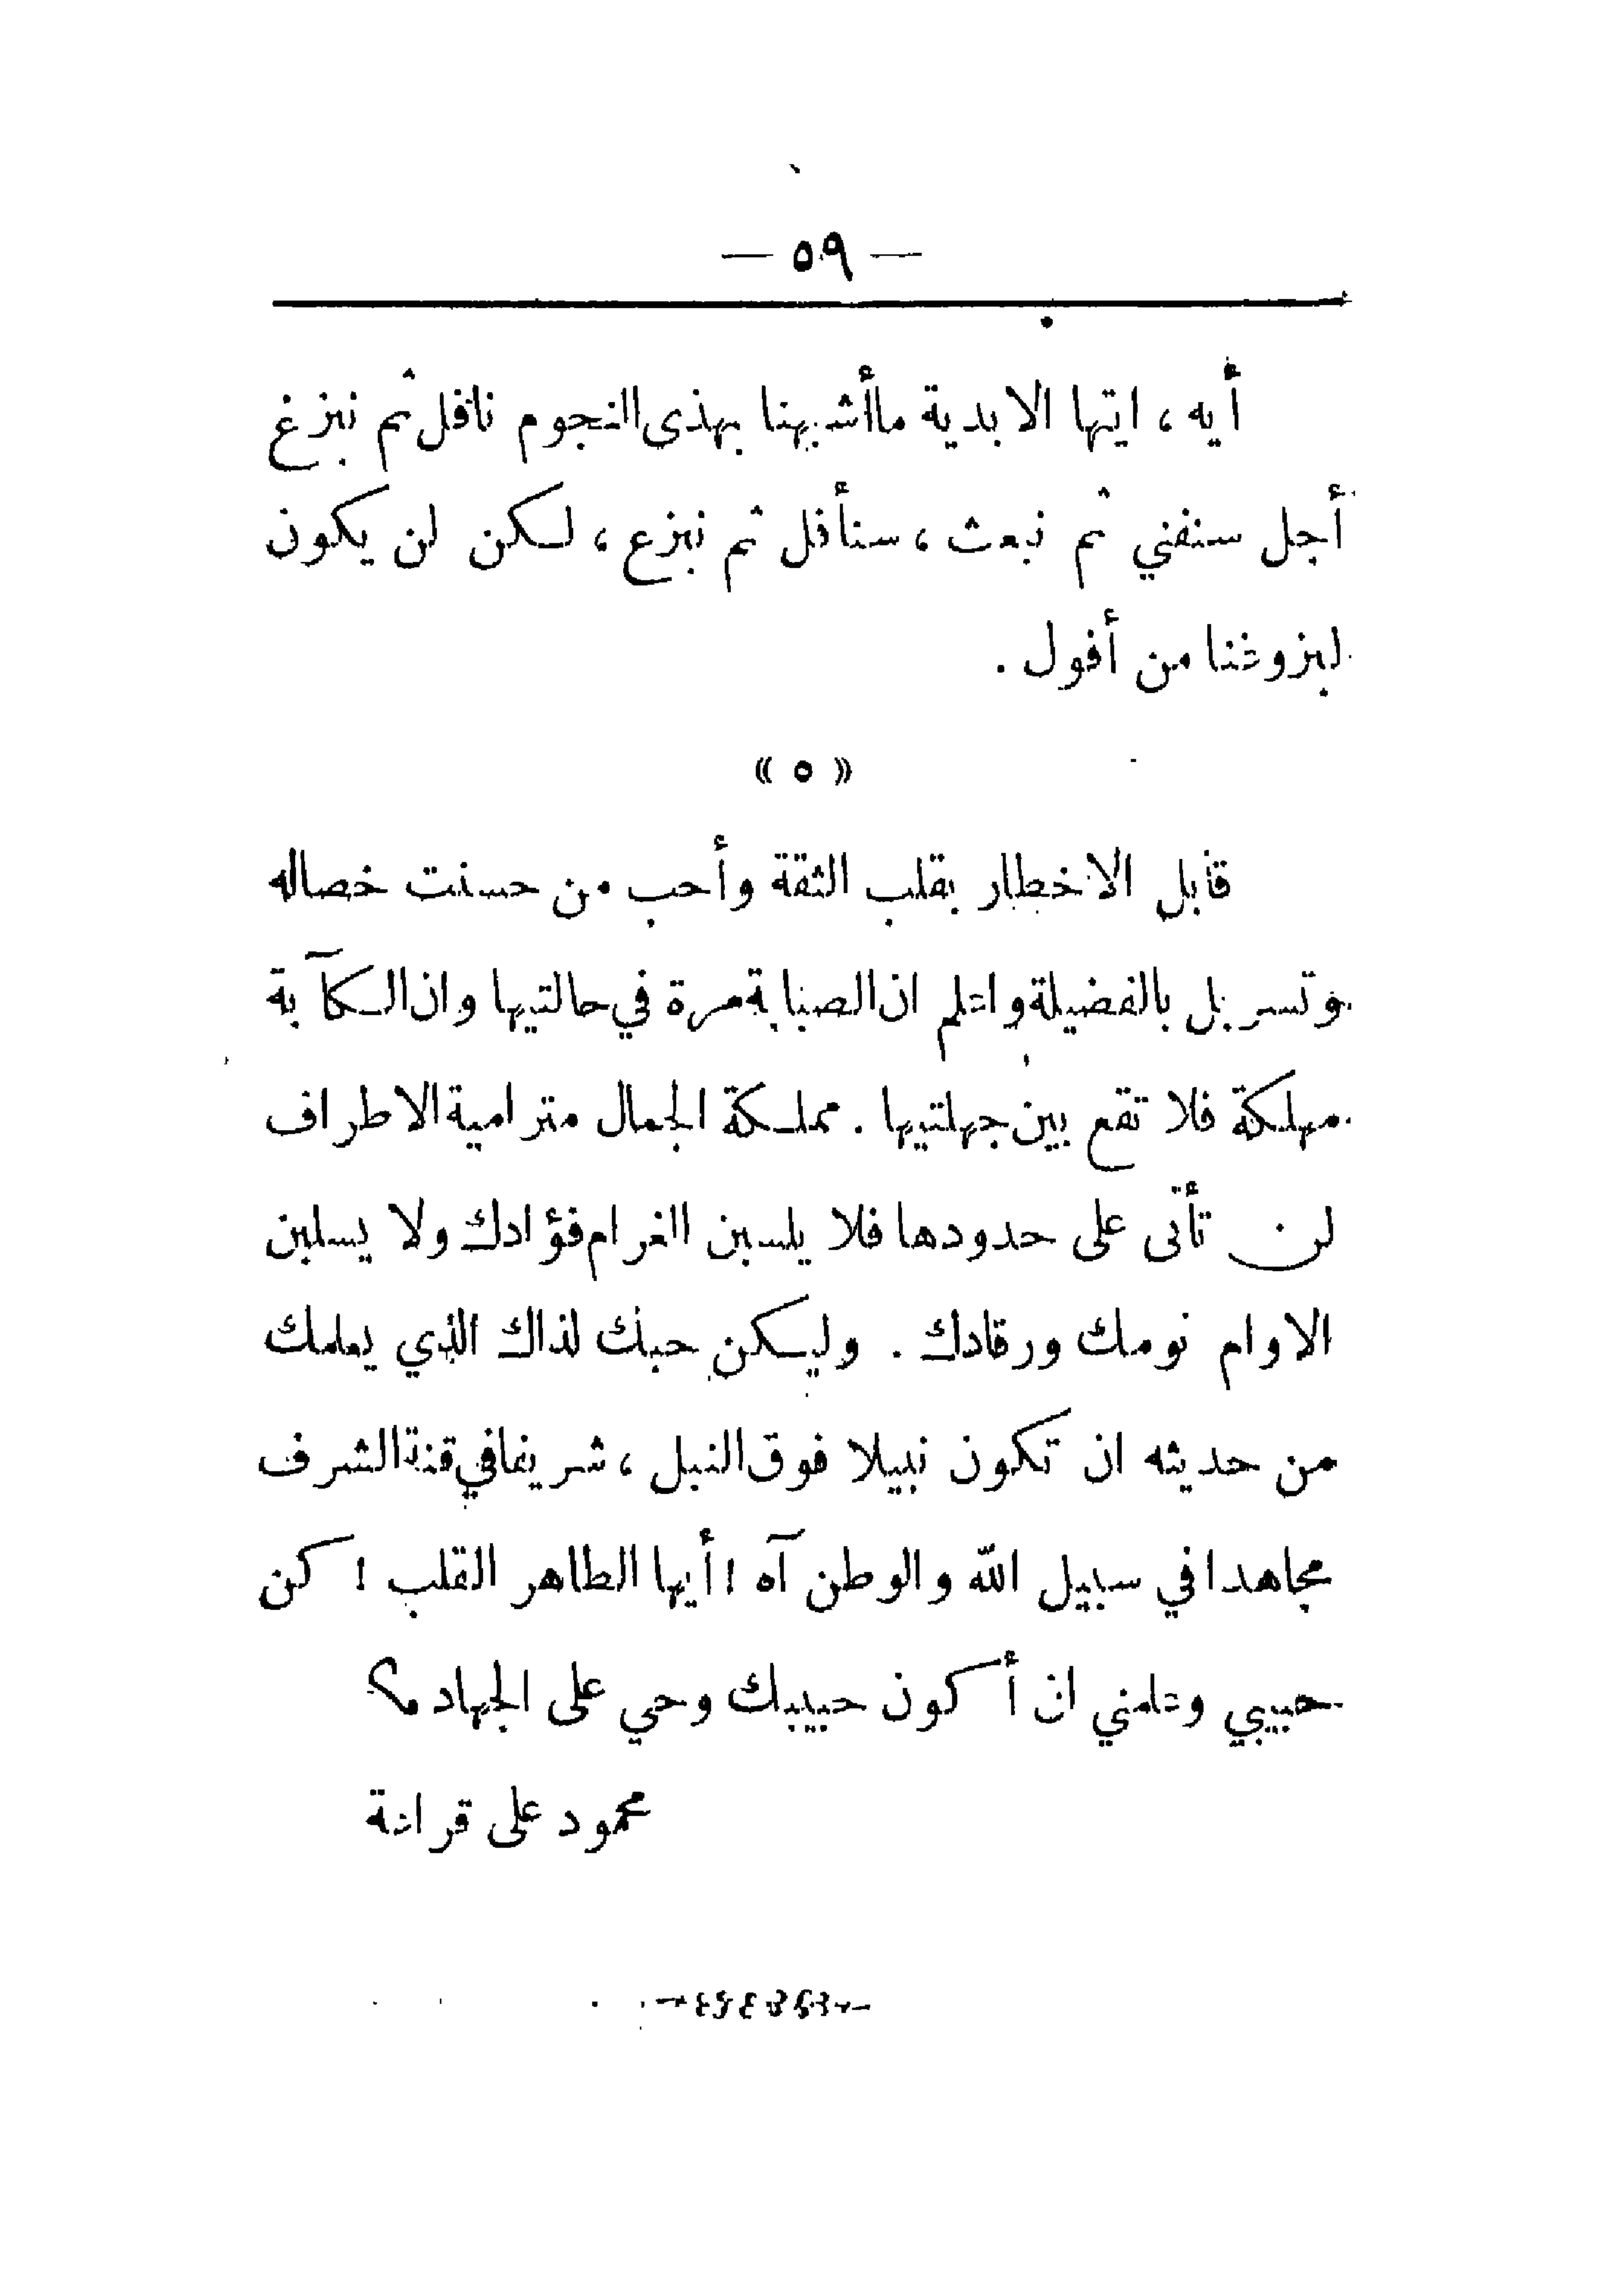 — ٥٩ —
أيه ، ايتها الابدية ماأشبهنا بهذى النجوم نافل ثم نبزغ
أجل سنفني ثم نبعث ، سنأفل ثم نبزع ، لكن لن يكون
لبزوغنا من أفول .
« ٥ »
قابل الاخطار بقلب الثقة وأحب من حسنت خصاله
وتسربل بالفضيلة واعلم ان الصبابة مرة في حالتيها وان الكآبة
مهلكة فلا تقع بين جهلتيها . مملكة الجمال مترامية الاطراف
لن تأتى على حدودها فلا يلسبن الغرام فؤادك ولا يسلبن
الاوام نومك ورقادك . وليكن حبك لذاك الذي يعلمك
من حديثه ان تكون نبيلا فوق النبل ، شريفا في قنة الشرف
مجاهدا في سبيل الله والوطن آه ! أيها الطاهر القلب ! كن
حبيبي وعلمني ان أكون حبيبك وحي على الجهاد م؟
محمود على قراعة